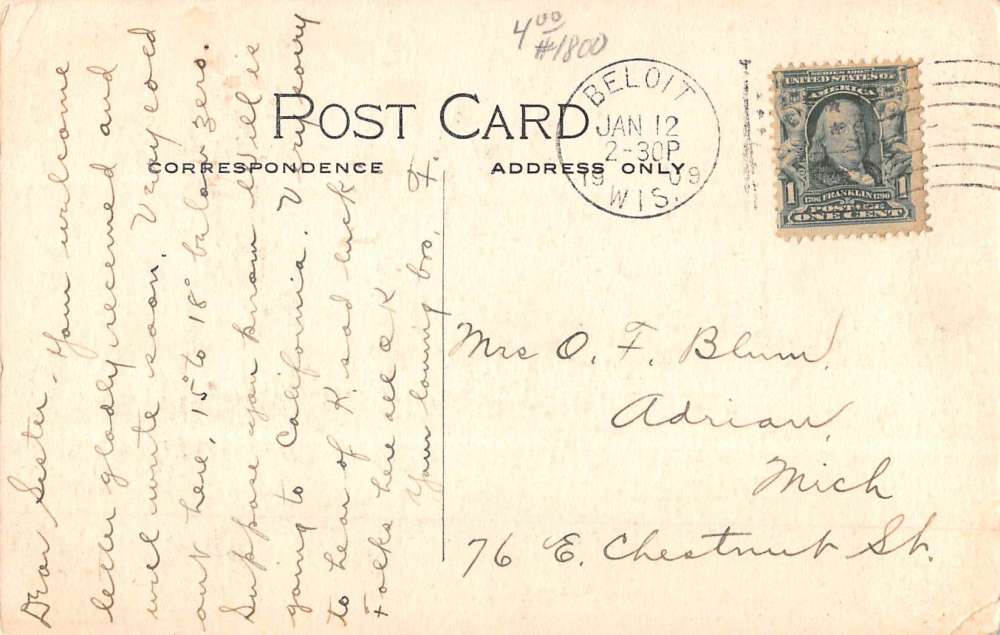 4.00
#1800
POST CARD
CORRESPONDENCE
ADDRESS ONLY
BELOIT
JAN 12
2-30P
1909
WIS.
SERIES 1902
UNITED STATES OF
AMERICA
1
1
1706 FRANKLIN 1790
POSTAGE
ONE CENT
Dear Sister, Your welcome
letter gladly received and
will write soon. Very cold
out here, 15° to 18° below zero.
Suppose you know Will is
going to California. Very sorry
to hear of K. sad luck
Folks here all O K
Your loving bro. F.
Mrs O. F. Blum,
Adrian,
Mich
76 E. Chestnut St.